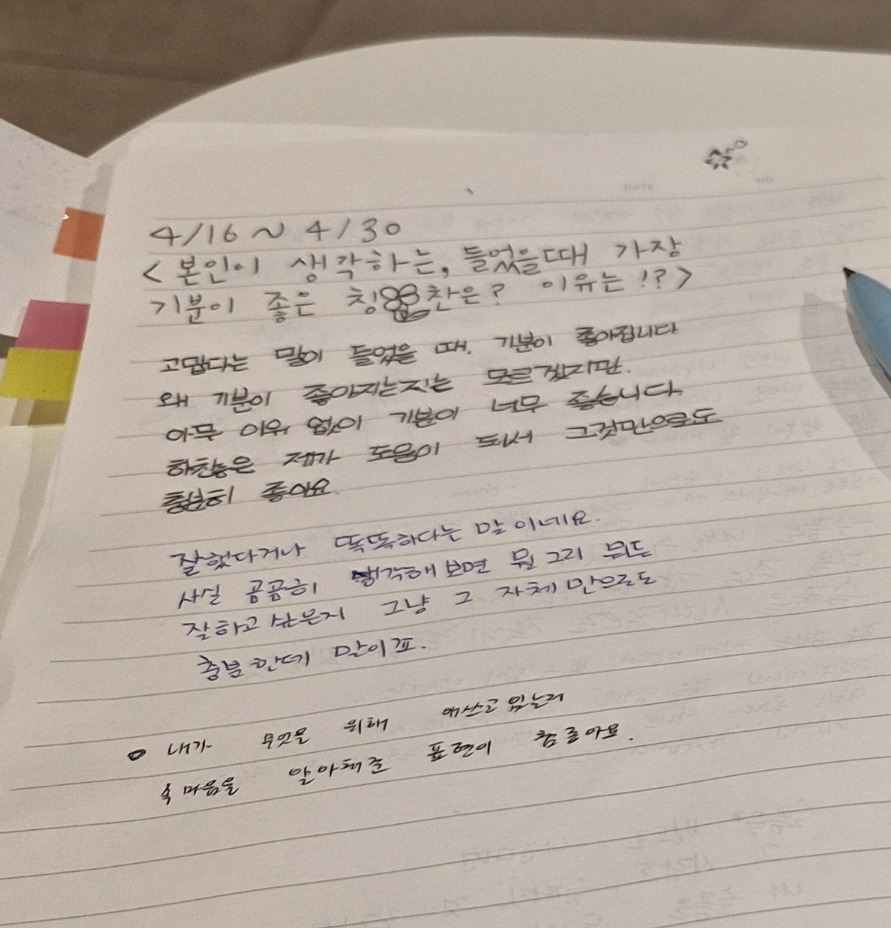 4/16 ~ 4/30
<본인이 생각하는, 들었을때 가장
기분이 좋은 칭찬은? 이유는!?>
고맙다는 말이 들었을 때, 기분이 좋아집니다
왜 기분이 좋아지는지는 모르겠지만.
아무 이유 없이 기분이 너무 좋습니다.
하찮은 제가 도움이 되서 그것만으로도
충분히 좋아요.
잘했다거나 똑똑하다는 말이네요.
사실 곰곰히 생각해보면 뭘 그리
잘하고 싶은지 그냥 그 자체만으로도
충분한데 말이죠.
내가 무엇을 위해 애쓰고 있는지
속마음을 알아채준 표현이 참 좋아요.